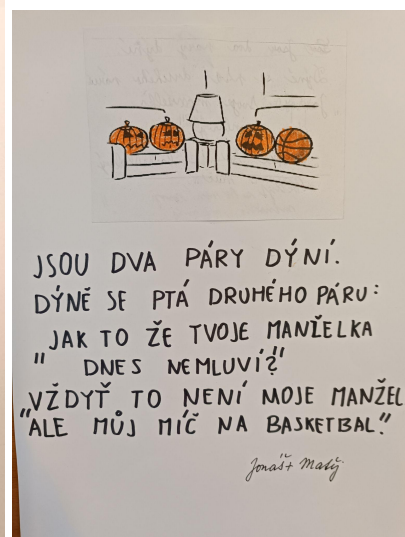 JSOU DVA PÁRY DÝNÍ.
DÝNĚ SE PTÁ DRUHÉHO PÁRU:
"JAK TO ŽE TVOJE MANŽELKA
DNES NEMLUVÍ?"
"VŽDYŤ TO NENÍ MOJE MANŽEL
ALE MŮJ MÍČ NA BASKETBAL."
Jonáš + Matěj